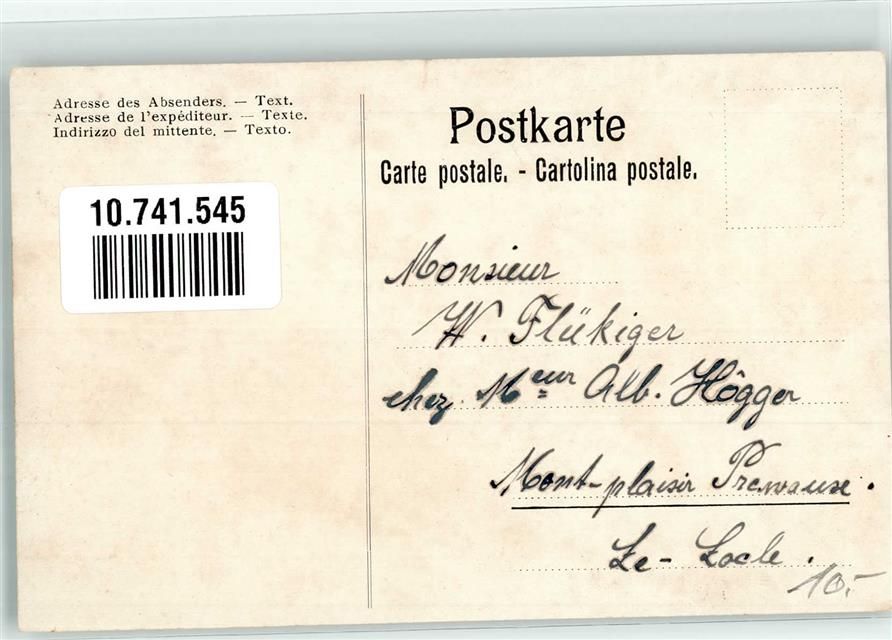 Adresse des Absenders. — Text.
Adresse de l'expéditeur. — Texte.
Indirizzo del mittente. — Texto.
10.741.545
Postkarte
Carte postale. - Cartolina postale.
Monsieur
W. Flükiger
chez Meur Alb. Hôgger
Mont-plaisir
Le-Locle.
10.-